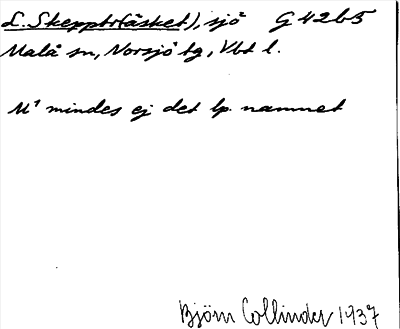 L. Skeppträsket), sjö G42b5
Malå sn, Norsjö tg, Vbt l.
M¹ mindes ej det lp. namnet
Björn Collinder 1937